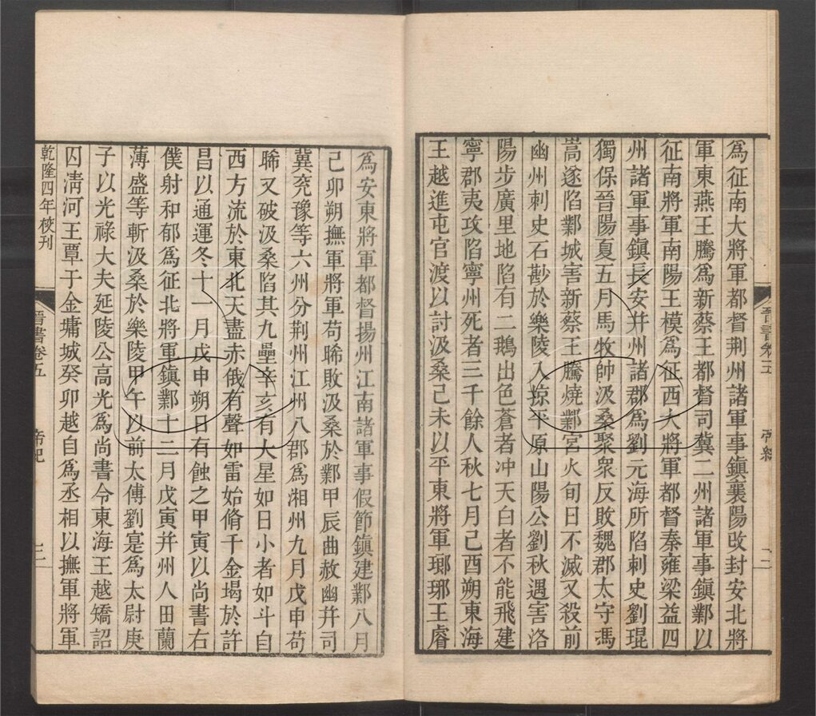 爲征南大將軍都督荆州諸軍事鎭襄陽改封安北將
軍東燕王騰爲新蔡王都督司冀二州諸軍事鎭鄴以
征南將軍南陽王模爲征西大將軍都督秦雍梁益四
州諸軍事鎭長安并州諸郡爲劉元海所陷刺史劉琨
獨保晉陽夏五月馬牧帥汲桑聚衆反敗魏郡太守馮
嵩遂陷鄴城害新蔡王騰燒鄴宮火旬日不滅又殺前
幽州刺史石尠於樂陵入掠平原山陽公劉秋遇害洛
陽步廣里地陷有二鵝出色蒼者冲天白者不能飛建
寧郡夷攻陷寧州死者三千餘人秋七月己酉朔東海
王越進屯官渡以討汲桑己未以平東將軍瑯琊王睿
爲安東將軍都督揚州江南諸軍事假節鎭建鄴八月
己卯朔撫軍將軍苟晞敗汲桑於鄴甲辰曲赦幽并司
冀兗豫等六州分荆州江州八郡爲湘州九月戊申苟
晞又破汲桑陷其九壘辛亥有大星如日小者如斗自
西方流於東北天盡赤俄有聲如雷始脩千金堨於許
昌以通運冬十一月戊申朔日有蝕之甲寅以尚書右
僕射和郁爲征北將軍鎭鄴十二月戊寅并州人田蘭
薄盛等斬汲桑於樂陵甲午以前太傅劉寔爲太尉庚
子以光祿大夫延陵公高光爲尚書令東海王越矯詔
囚淸河王覃于金墉城癸卯越自爲丞相以撫軍將軍
乾隆四年校刊
晉書卷五
帝紀
三